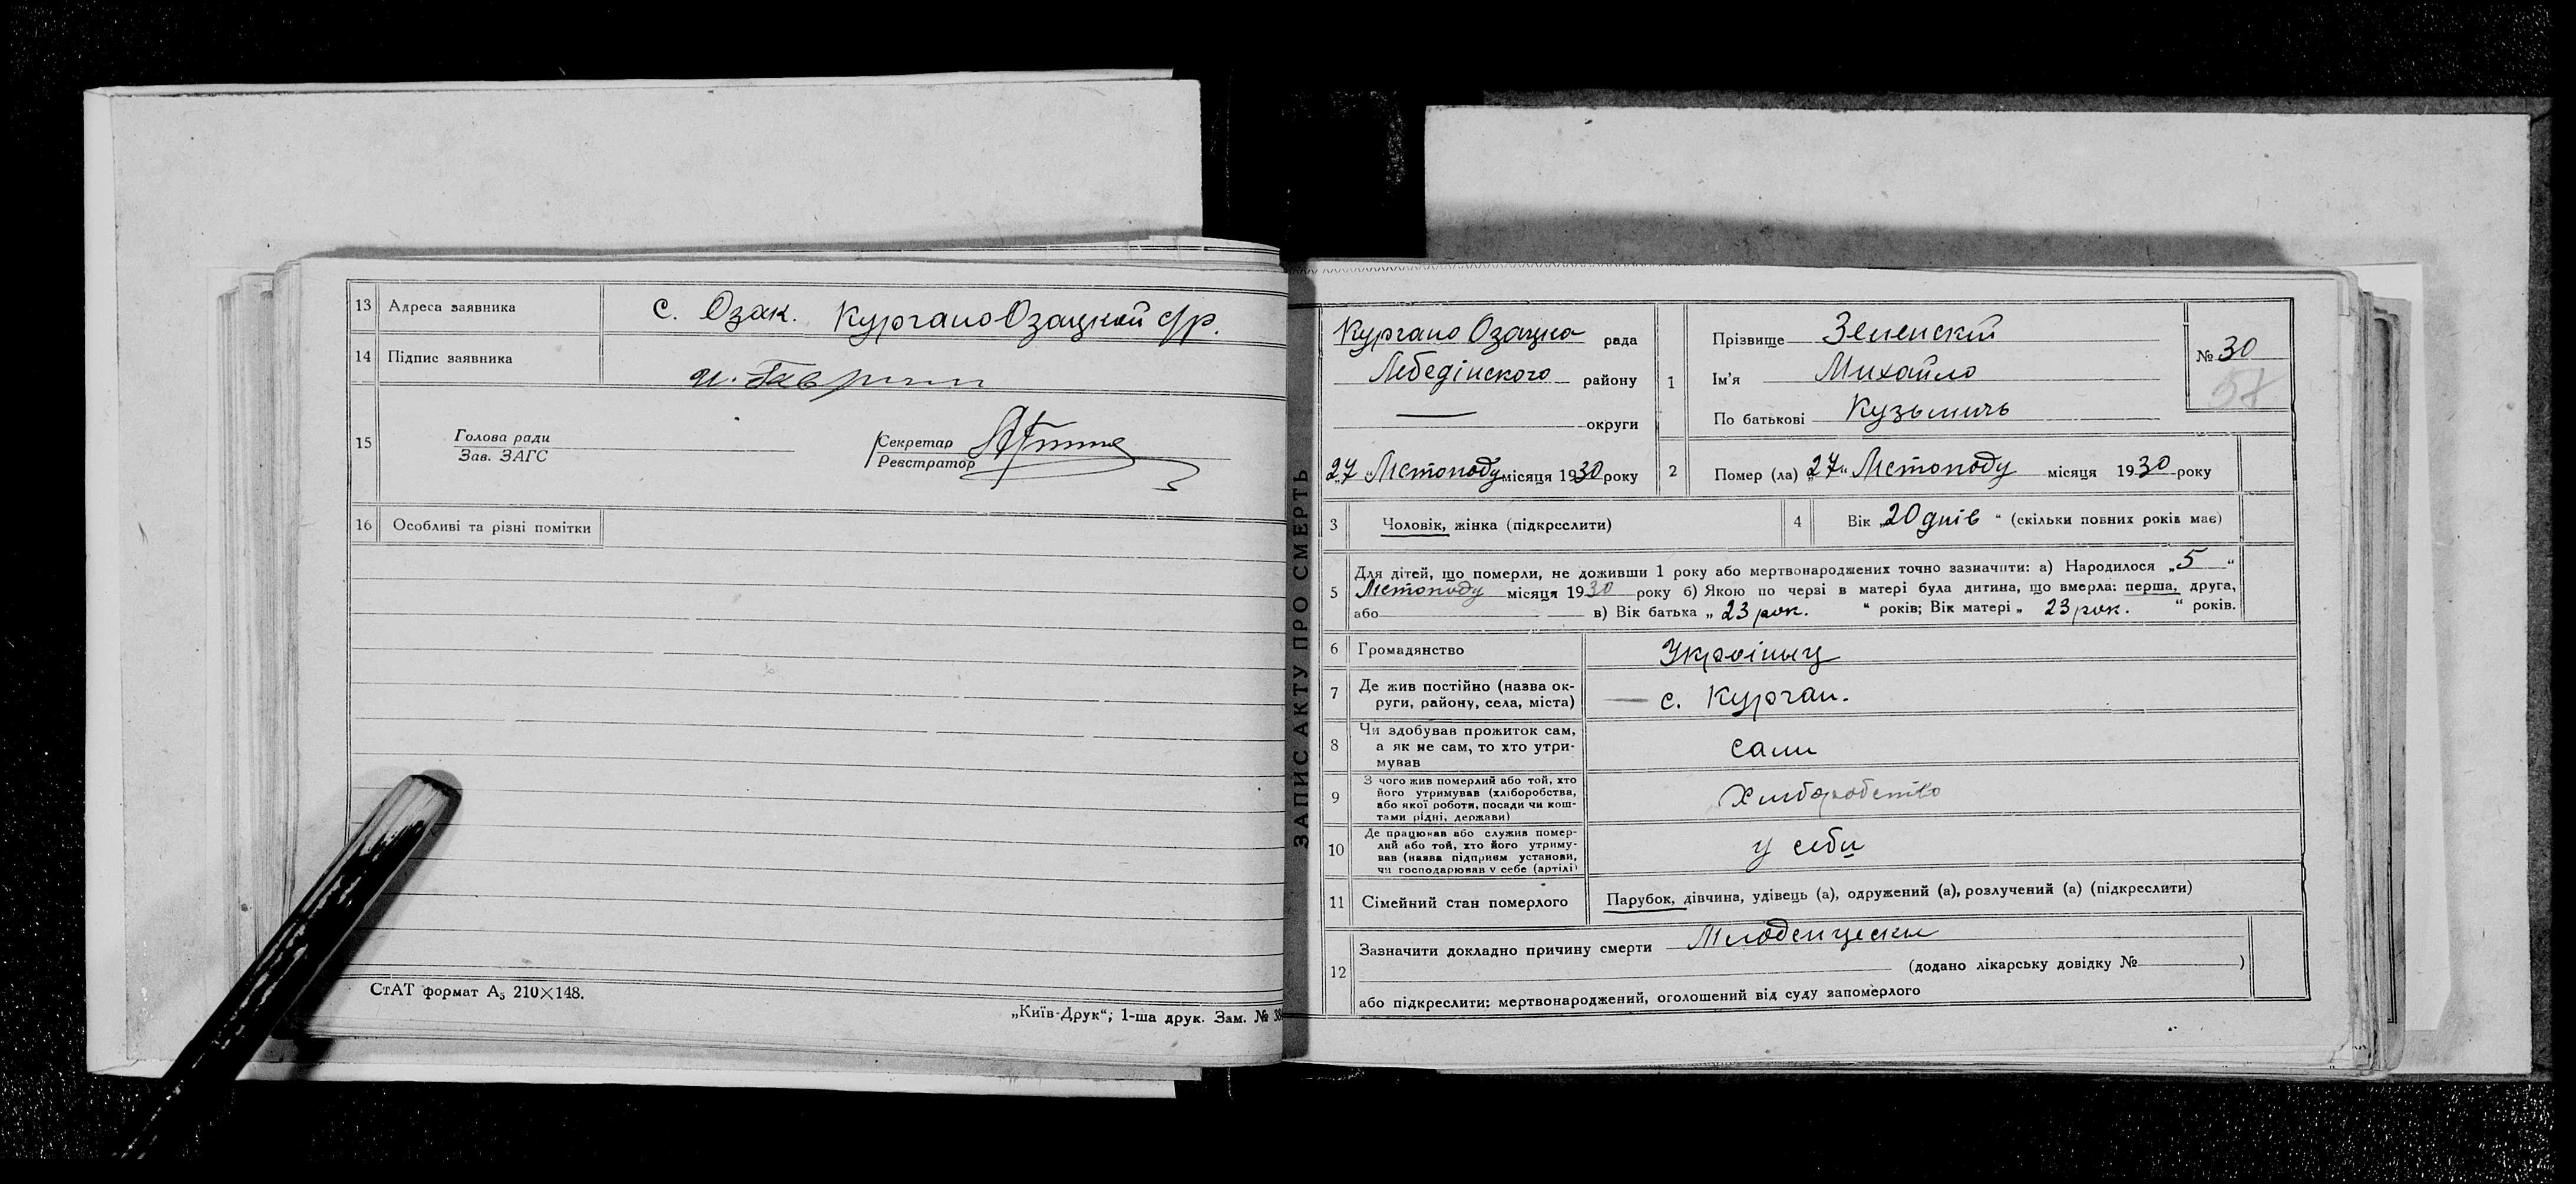 13 Адреса заявника С. Озак. КурганоОзацкой с/р.
14 Підпис заявника
15 Голова ради
Зав. ЗАГС
Секретар
Реєстратор
16 Особливі та різні помітки
СтАТ формат А5 210×148.
„Київ-Друк“; 1-ша друк. Зам. №
ЗАПИС АКТУ ПРО СМЕРТЬ
Кургано Озацка рада
Лебедінского району
округи
27 Лістопаду місяця 1930 року
1 Прізвище Зеленский
Ім'я Михайло
По батькові Кузьмичь
№ 30
58
2 Помер (ла) „27“ Лістопаду місяця 1930 року
3 Чоловік, жінка (підкреслити)
4 Вік „20 днів“ (скільки повних років має)
5 Для дітей, що померли, не доживши 1 року або мертвонароджених точно зазначити: а) Народилося „5“
Лістопаду місяця 1930 року б) Якою по черзі в матері була дитина, що вмерла: перша, друга,
або в) Вік батька „23 рок.“ років; Вік матері „23 рок.“ років.
6 Громадянство Україниц
7 Де жив постійно (назва округи, району, села, міста) с. Курган.
8 Чи здобував прожиток сам,
а як не сам, то хто утримував
сами
9 З чого жив померлий або той, хто
його утримував (хліборобства,
або якої роботи, посади чи коштами рідні, держави)
Хлиборобство
10 Де працював або служив померлий або той, хто його утримував (назва підприєм установи,
чи господарював у себе (артілі)
у себи
11 Сімейний стан померлого Парубок, дівчина, удівець (а), одружений (а), розлучений (а) (підкреслити)
12 Зазначити докладно причину смерти Млоденцески
(додано лікарську довідку № )
або підкреслити: мертвонароджений, оголошений від суду запомерлого